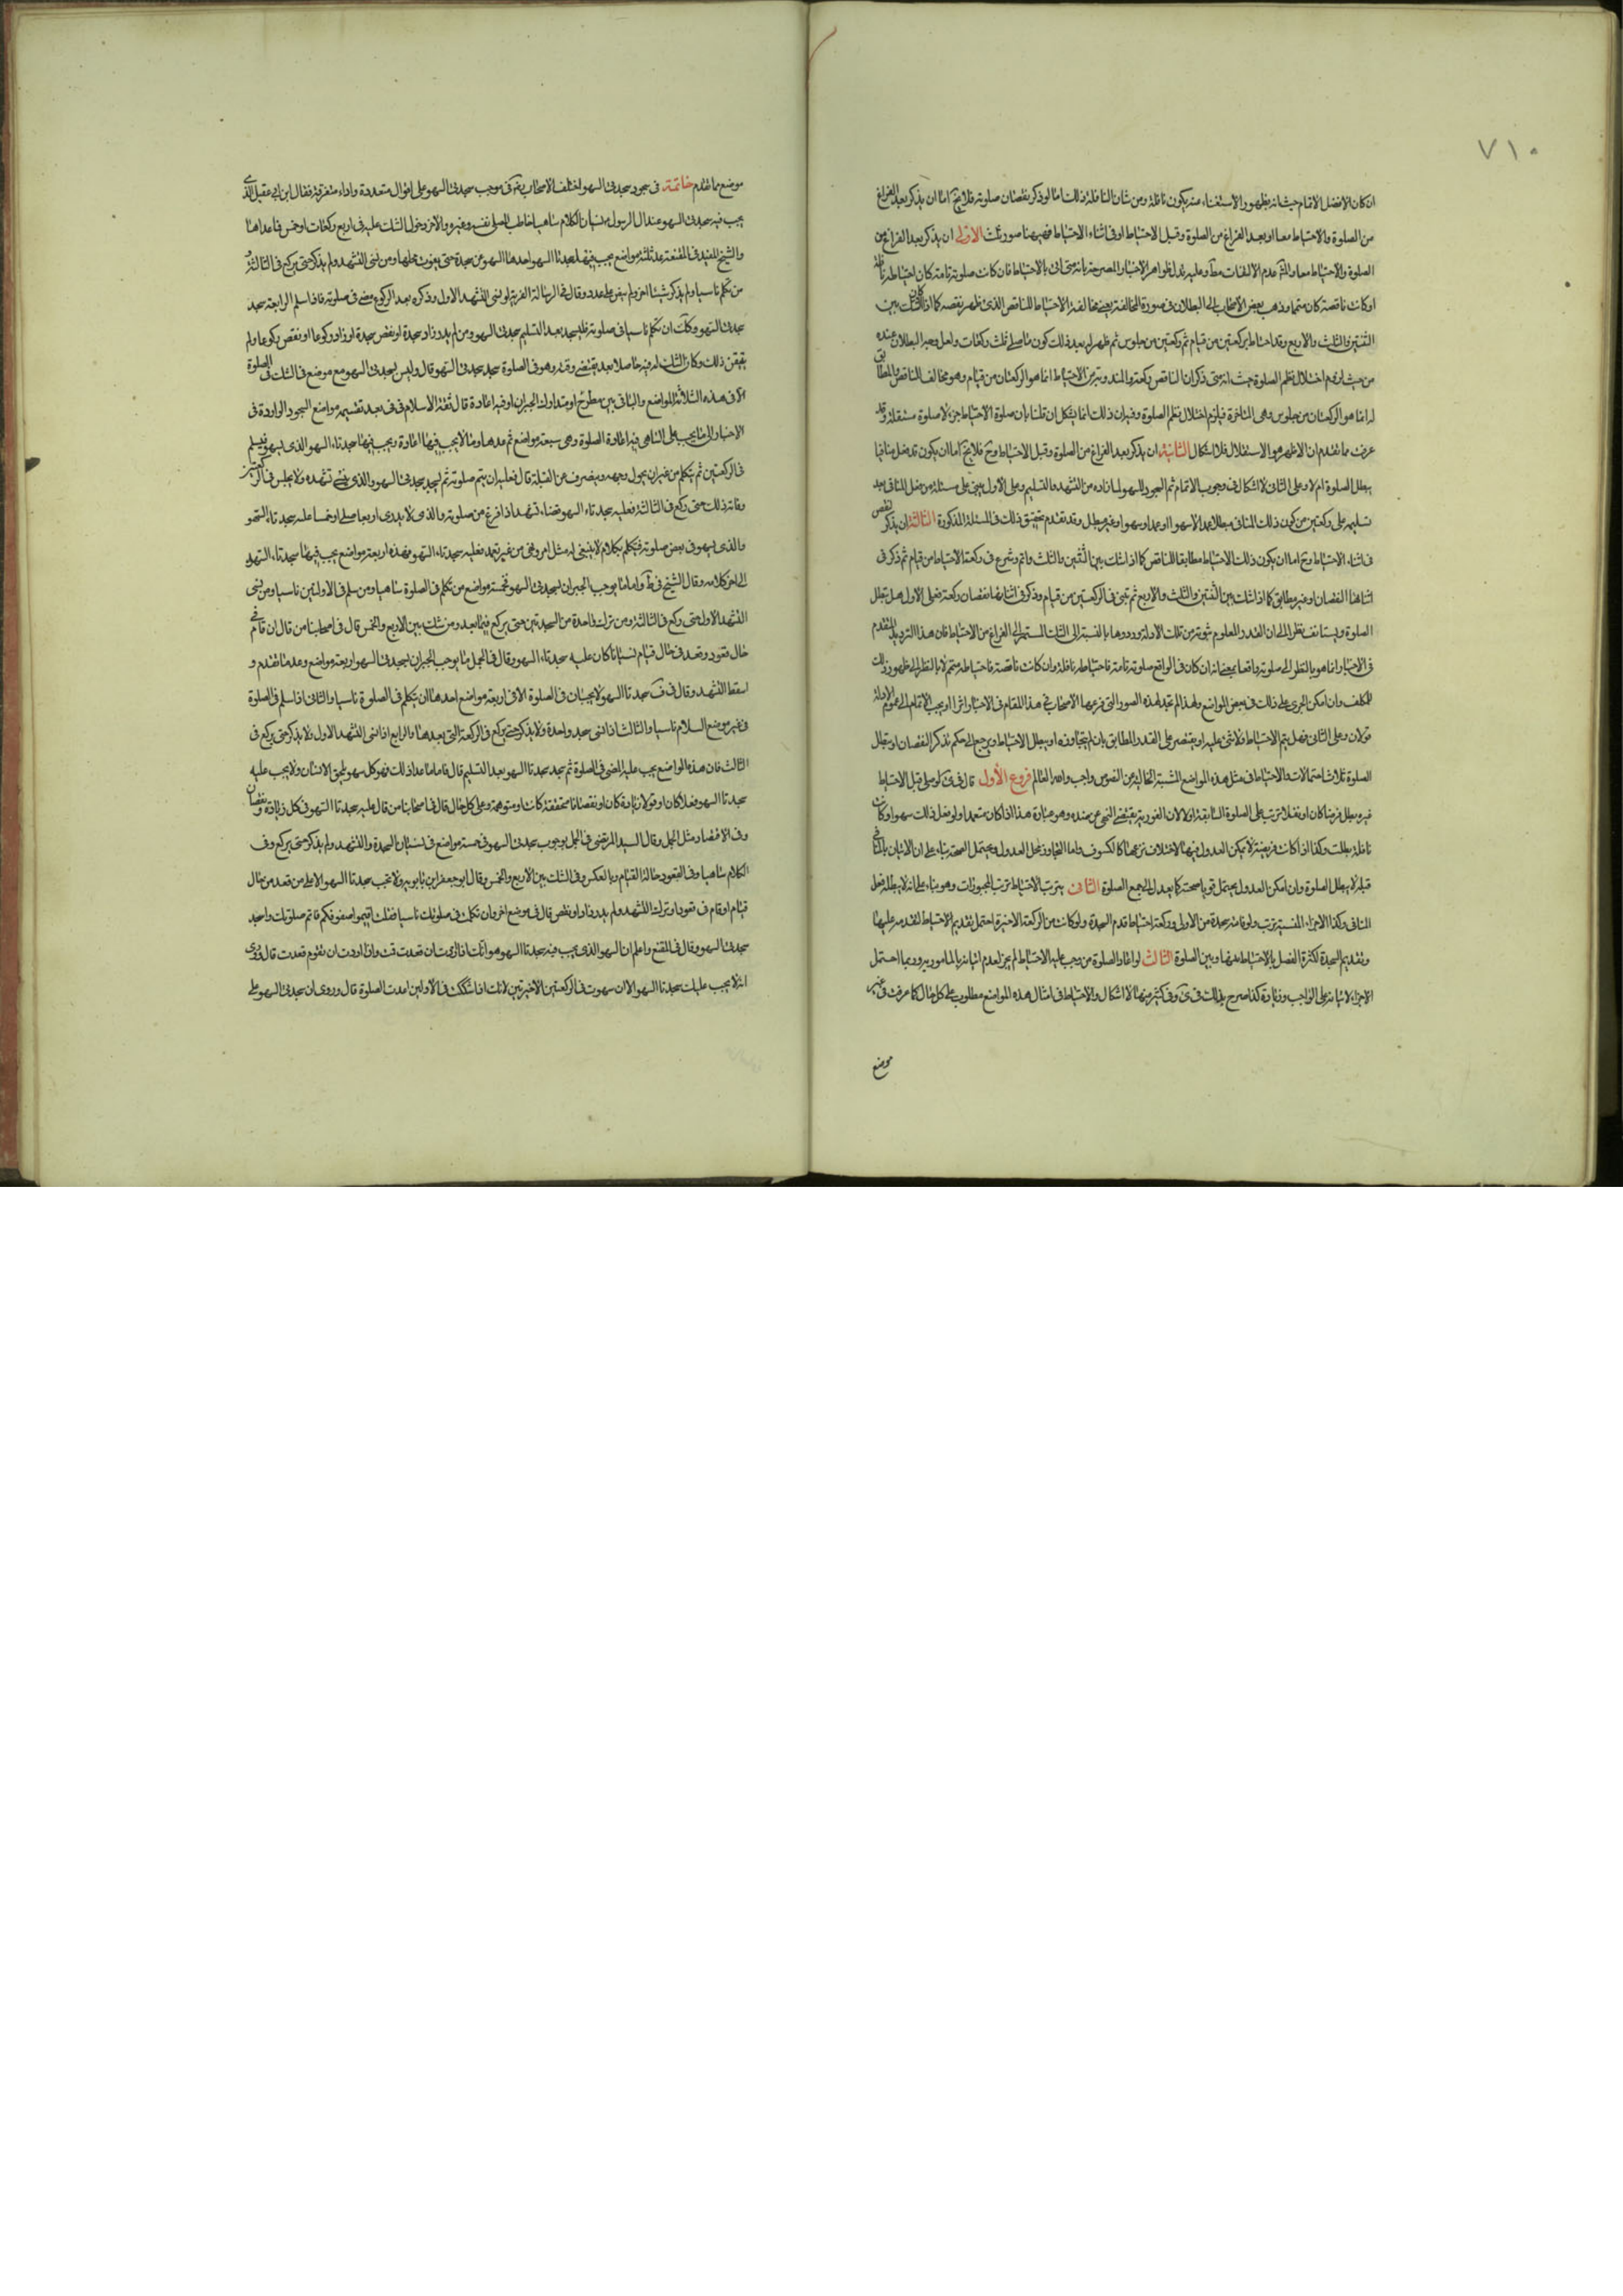 ٧١٠
ان كان الافضل الاتمام حيث انه بظهور الاستغناء عنه يكون نافلة ومن شان النافلة ذلك اما لو ذكر نقصان صلوته فلا يخ اما ان يذكر بعد الفراغ
من الصلوة والاحتياط معا او بعد الفراغ من الصلوة وقبل الاحتياط او في اثناء الاحتياط فههنا صور ثلث الاولى ان يذكر بعد الفراغ من
الصلوة والاحتياط معا عدم الالتفات مط وعليه تدل ظواهر الاخبار المصرحة بانه متى اتى بالاحتياط فان كانت صلوته تامة كان احتياطه نافلة
او كانت ناقصة كان متمما وذهب بعض الاصحاب الى البطلان في صورة المخالفة يعني مخالفة الاحتياط للناقص الذي ظهر نقصه كما اذا كان الشك بين
الثنتين والثلث والاربع وقد احتاط بركعتين من قيام ثم ركعتين من جلوس ثم ظهر له بعد ذلك كون ما صلى ثلث ركعات ولعل وجه البطلان عنده
من حيث لزوم اختلال نظم الصلوة حيث انه متى ذكر ان الناقص ركعة والمندوبة من الاحتياط انما هو الركعتان من قيام وهو مخالف للناقص والمطابق
له انما هو الركعتان من جلوس وهي المتاخرة فيلزم اختلال نظم الصلوة وفيه ان ذلك انما يشكل ان قلنا بان صلوة الاحتياط جزء لا صلوة مستقلة وقد
عرفت مما تقدم ان الاظهر هو الاستقلال فلا اشكال الثانية ان يذكر بعد الفراغ من الصلوة وقبل الاحتياط وح فلا يخ اما ان يكون قد فعل منافيا
يبطل الصلوة ام لا وعلى الثاني لا اشكال في وجوب الاتمام ثم السجود للسهو لما زاده من التشهد والتسليم وعلى الاول يبنى على مسئلة من فعل المنافي بعد
تسليمه على ركعتين من كون ذلك المنافي مبطلا عمدا لا سهوا او عمدا وسهوا او غير مبطل وقد تقدم تحقيق ذلك في المسئلة المذكورة الثالثة ان يذكر النقص
في اثناء الاحتياط وح اما ان يكون ذلك الاحتياط مطابقا للناقص كما اذا شك بين الثنتين والثلث واتم وشرع في ركعة الاحتياط من قيام ثم ذكر في
اثنائها النقصان او غير مطابق كما اذا شك بين الثنتين والثلث والاربع ثم تبنى في الركعتين من قيام وذكر في اثنائها نقصان ركعة فعلى الاول هل تبطل
الصلوة ويستانف نظرا الى ان القدر المعلوم ثبوته من تلك الادلة ورودها بالنسبة الى الشك المستمر الى الفراغ من الاحتياط فان هذا الترديد المتقدم
في الاخبار انما هو بالنظر الى صلوته واقعا بمعنى انه ان كان في الواقع صلوته تامة فاحتياطه نافلة وان كانت ناقصة فاحتياطه متمم لا بالنظر الى ظهور ذلك
للمكلف وان امكن الجري على ذلك في بعض المواضع ولهذا لم نجد لهذه الصور التي فرعها الاصحاب في هذا المقام في الاخبار اثرا او يجب الاتمام الى عموم الادلة
قولان وعلى الثاني فهل يتم الاحتياط ولا شئ عليه او يقتصر على القدر المطابق بان لم يتجاوزه او يبطل الاحتياط ويرجع الى حكم تذكر النقصان او تبطل
الصلوة ثلاث احتمالات والاحتياط في مثل هذه المواضع المشتبة الخالية من النصوص واجب والله العالم فروع الاول قال في ى لو صلى قبل الاحتياط
غيره بطل فرضا كان او نفلا لترتبه على الصلوة السابقة اولا لان الفورية يقتضي النهي عن ضده وهو عبادة هذا اذا كان متعمدا ولو فعل ذلك سهوا وكانت
نافلة بطلت وكذا اذا كانت فريضة لا يمكن العدول فيها لاختلاف نوعها كالكسوف واما لتجاوز محل العدول ويحتمل الصحة بناء على ان الاتيان بالمنافي
قبله لا يبطل الصلوة وان امكن العدول يحتمل قويا صحته كما يعدل الى جميع الصلوة الثاني يترتب الاحتياط ترتب المجبورات وهو بناء على انه لا يبطله فعل
المنافي وكذا الاجزاء المنسية ترتب ولو فاته سجدة من الاولى وركعة احتياط قدم السجدة ولو كانت من الركعة الاخيرة احتمل تقديم الاحتياط لتقدمه عليها
وتقديم السجدة لكثرة الفصل بالاحتياط بينها وبين الصلوة الثالث لو اعاد الصلوة من وجب عليه الاحتياط لم يجز لعدم اتيانه بالمامور به وربما احتمل
الاجزاء لاتيانه على الواجب وزيادة كذا صرح بذلك في ى وفي كثير منها لا اشكال والاحتياط في امثال هذه المواضع مطلوب على كل حال كما عرفت في غير
موضع
موضع مما تقدم خاتمة في سجود سجدتي السهو اختلف الاصحاب رض في موجب سجدتي السهو على اقوال متعددة واراء متفرقة فقال ابن ابي عقيل الذي
يجب فيه سجدتي السهو عند ال الرسول ص شيئان الكلام ساهيا خاطب المصلي نفسه وغيره والاخر دخول الشك عليه في اربع ركعات او خمس فما عداها
والشيخ المفيد في المقنعة عد ثلثة مواضع يجب فيها سجدتا السهو احدها السهو عن سجدة حتى يفوت محلها ومن نسى التشهد ولم يذكر حتى يركع في الثالثة و
من تكلم ناسيا ولم يذكر شيئا اخر ولم يبق على عدد وقال في الرسالة الغرية لو نسى التشهد الاول وذكره بعد الركوع مضى في صلوته فاذا سلم الرابعة سجد
سجدتي السهو وكك ان تكلم ناسيا في صلوته فليسجد بعد التسليم سجدتي السهو ومن لم يدر زاد سجدة او نقص سجدة او زاد ركوعا او نقص ركوعا ولم
يتيقن ذلك وكان الشك له فيه حاصلا بعد تقضي وقته وهو في الصلوة سجد سجدتي السهو قال وليس لسجدتي السهو مع موضع في الشك في الصلوة
الا في هذه الثلاثة المواضع والباقي بين مطرح او متدارك الجبران او فيه اعادة قال ثقة الاسلام في فى بعد تقسيمه مواضع السجود الواردة في
الاخبار الى ما يجب على الناهي فيه اعادة الصلوة وهي سبعة مواضع ثم عدها وما لا يجب فيها اعادة ويجب فيها سجدتا السهو الذي يسهو فيسلم
في الركعتين ثم يتكلم من غير ان يحول وجهه وينصرف عن القبلة قال فعليه ان يتم صلوته ثم ليسجد سجدتي السهو والذي ينسى تشهده ولا يجلس في الركعتين
وفاته ذلك حتى ركع في الثالثة فعليه سجدتا السهو قضاء تشهد اذا فرغ من صلوته والذي لا يدري اربعا صلى او خمسا عليه سجدتا السهو
والذي يسهو في بعض صلوته فيتكلم بكلام لا ينبغي له مثل امر ونهي من غير تعمد فعليه سجدتا السهو فهذه اربعة مواضع يجب فيها سجدتا السهو
الى اخر كلامه وقال الشيخ في ط واما ما يوجب الجبران لسجدتي السهو فخمسة مواضع من تكلم في الصلوة ساهيا ومن سلم في الاولتين ناسيا ومن نسى
التشهد الاول حتى ركع في الثالثة ومن ترك واحدة من السجدتين حتى يركع فيما بعد ومن شك بين الاربع والخمس قال في اصحابنا من قال ان قام في
حال قعود وقعد في حال قيام نسيانا كان عليه سجدتا السهو وقال في الجمل ما يوجب الجبران لسجدتي السهو اربعة مواضع وعد ما تقدم و
اسقط التشهد وقال في ف سجدتا السهو لا يجبان في الصلوة الا في اربعة مواضع احدها ان يتكلم في الصلوة ناسيا والثاني اذا سلم في الصلوة
في غير موضع السلام ناسيا والثالث اذا نسى سجدة واحدة ولا يذكر حتى يركع في الركعة التي بعدها والرابع اذا نسى التشهد الاول ولا يذكر حتى يركع في
الثالث فان هذه المواضع يجب عليه المضي في الصلوة ثم سجد سجدتا السهو بعد التسليم قال فاما ما عدا ذلك فهو كل سهو يلحق الانسان ولا يجب عليه
سجدتا السهو فعلا كان او قولا زيادة كان او نقصانا متحققة كانت او متوهمة وعلى كل حال قال في اصحابنا من قال عليه سجدتا السهو في كل زيادة ونقصان
وفي الاقتصاد مثل الجمل وقال السيد المرتضى في الجمل بوجوب سجدتي السهو في خمسة مواضع في نسيان السجدة والتشهد ولم يذكر حتى يركع وفي
الكلام ساهيا وفي القعود حالة القيام وبالعكس وفي الشك بين الاربع والخمس وقال ابو جعفر ابن بابويه ولا تجب سجدتا السهو الا على من قعد من حال
قيام او قام في قعود او ترك التشهد ولم يدر زاد او نقص قال في موضع اخر وان تكلمت في صلوتك ناسيا فقلت اقيموا صفوفكم فاتم صلوتك واسجد
سجدتي السهو وقال في المقنع واعلم ان السهو الذي يجب فيه سجدتا السهو هو انك اذا اردت ان تقعد قمت واذا اردت ان تقوم قعدت قال وروى
انه لا يجب عليك سجدتا السهو الا ان سهوت في الركعتين الاخيرتين لانك اذا شككت في الاولين اعدت الصلوة قال وروى ان سجدتي السهو على